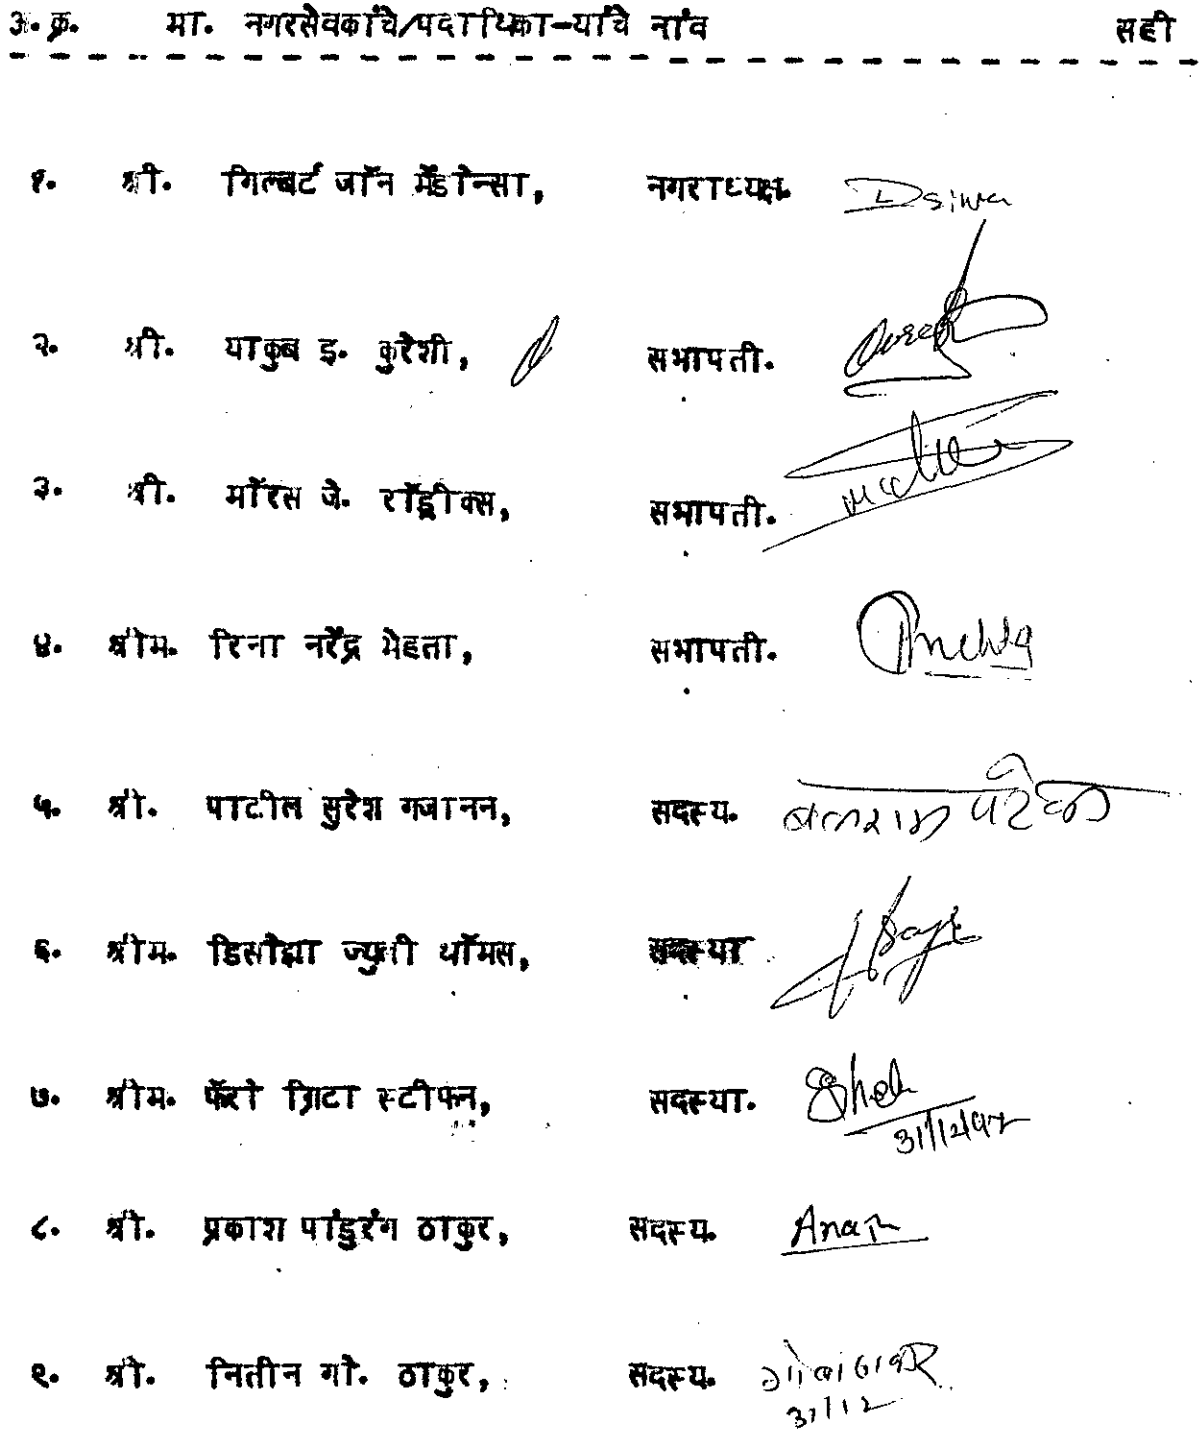 अ. क्र. मा. नगरसेवकांचे/पदाधिका-यांचे नांव सही
१. श्री. गिल्बर्ट जॉन मेंडोन्सा, नगराध्यक्ष.
२. श्री. याकुब इ. कुरेशी, सभापती.
३. श्री. मॉरस जे. रॉड्रीक्स, सभापती.
४. श्रीम. रिना नरेंद्र मेहता, सभापती. Rmehta
५. श्री. पाटील सुरेश गजानन, सदस्य.
६. श्रीम. डिसोझा ज्युली थॉमस, सदस्या
७. श्रीम. फॅरो ग्रिटा स्टीफन, सदस्या.
31/12/97
८. श्री. प्रकाश पांडुरंग ठाकुर, सदस्य.
९. श्री. नितीन गो. ठाकुर, सदस्य.
31/12